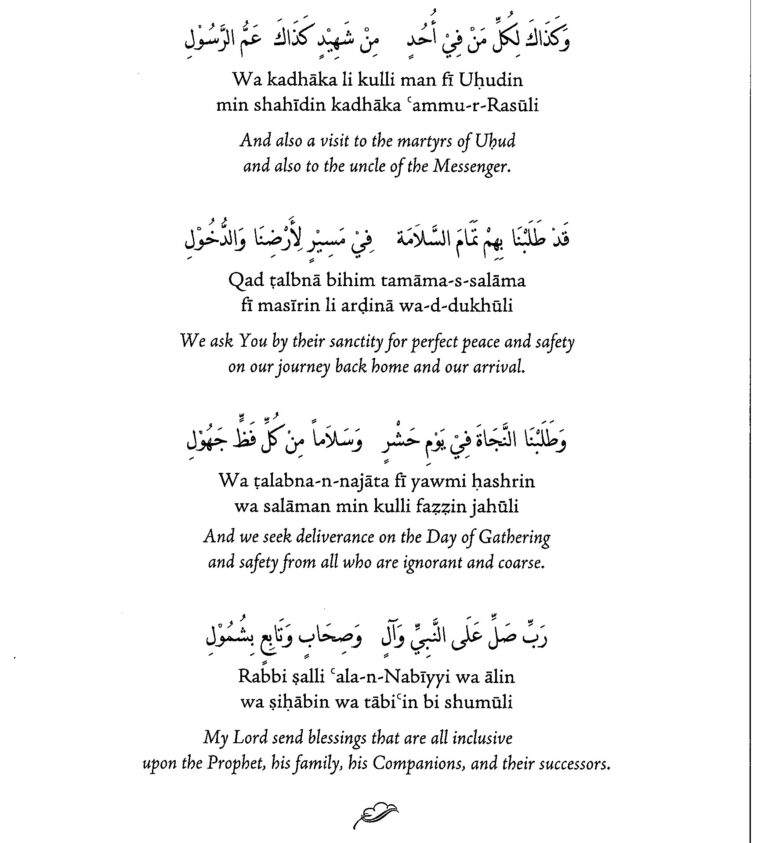 وَكَذَاكَ لِكُلِّ مَنْ فِيْ أُحُدٍ مِنْ شَهِيْدٍ كَذَاكَ عَمُّ الرَّسُوْلِ
Wa kadhāka li kulli man fī Uḥudin
min shahīdin kadhāka ʿammu-r-Rasūli
And also a visit to the martyrs of Uḥud
and also to the uncle of the Messenger.
قَدْ طَلَبْنَا بِهِمْ تَمَامَ السَّلَامَة فِيْ مَسِيْرٍ لِأَرْضِنَا وَالدُّخُوْلِ
Qad ṭalbnā bihim tamāma-s-salāma
fī masīrin li arḍinā wa-d-dukhūli
We ask You by their sanctity for perfect peace and safety
on our journey back home and our arrival.
وَطَلَبْنَا النَّجَاةَ فِيْ يَوْمِ حَشْرٍ وَسَلَاماً مِنْ كُلِّ فَظٍّ جَهُوْلِ
Wa ṭalabna-n-najāta fī yawmi ḥashrin
wa salāman min kulli faẓẓin jahūli
And we seek deliverance on the Day of Gathering
and safety from all who are ignorant and coarse.
رَبِّ صَلِّ عَلَى النَّبِيِّ وَآلٍ وَصِحَابٍ وَتَابِعٍ بِشُمُوْلِ
Rabbi ṣalli ʿala-n-Nabīyyi wa ālin
wa ṣiḥābin wa tābiʿin bi shumūli
My Lord send blessings that are all inclusive
upon the Prophet, his family, his Companions, and their successors.